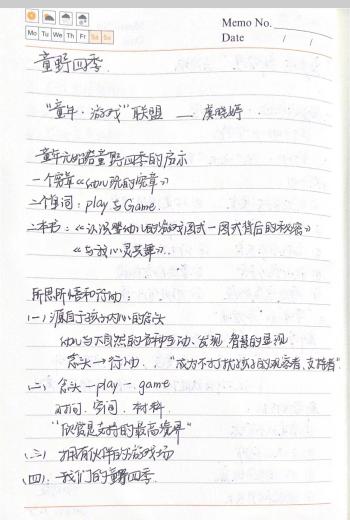 Memo No.
Mo Tu We Th Fr Sa Su
Date / /
童野四季.
"童年·游戏"联盟 — 虞晓婷
童年元始给童野四季的启示
一个宪章《幼儿院的宪章》
二个单词: play与Game.
二本书: 《认识婴幼儿的游戏图式—图式背后的秘密》
《与孩心灵共舞》.
所思所悟和行动:
(一) 源自于孩子内心的念头
幼儿与大自然的各种互动、发现, 智慧的显现
念头→行动. "成为不打扰孩子的观察者、支持者"
(二) 念头—play—game
时间. 空间. 材料.
"欣赏是支持的最高境界"
(三) 拥有伙伴的游戏场
(四): 我们的童野四季.